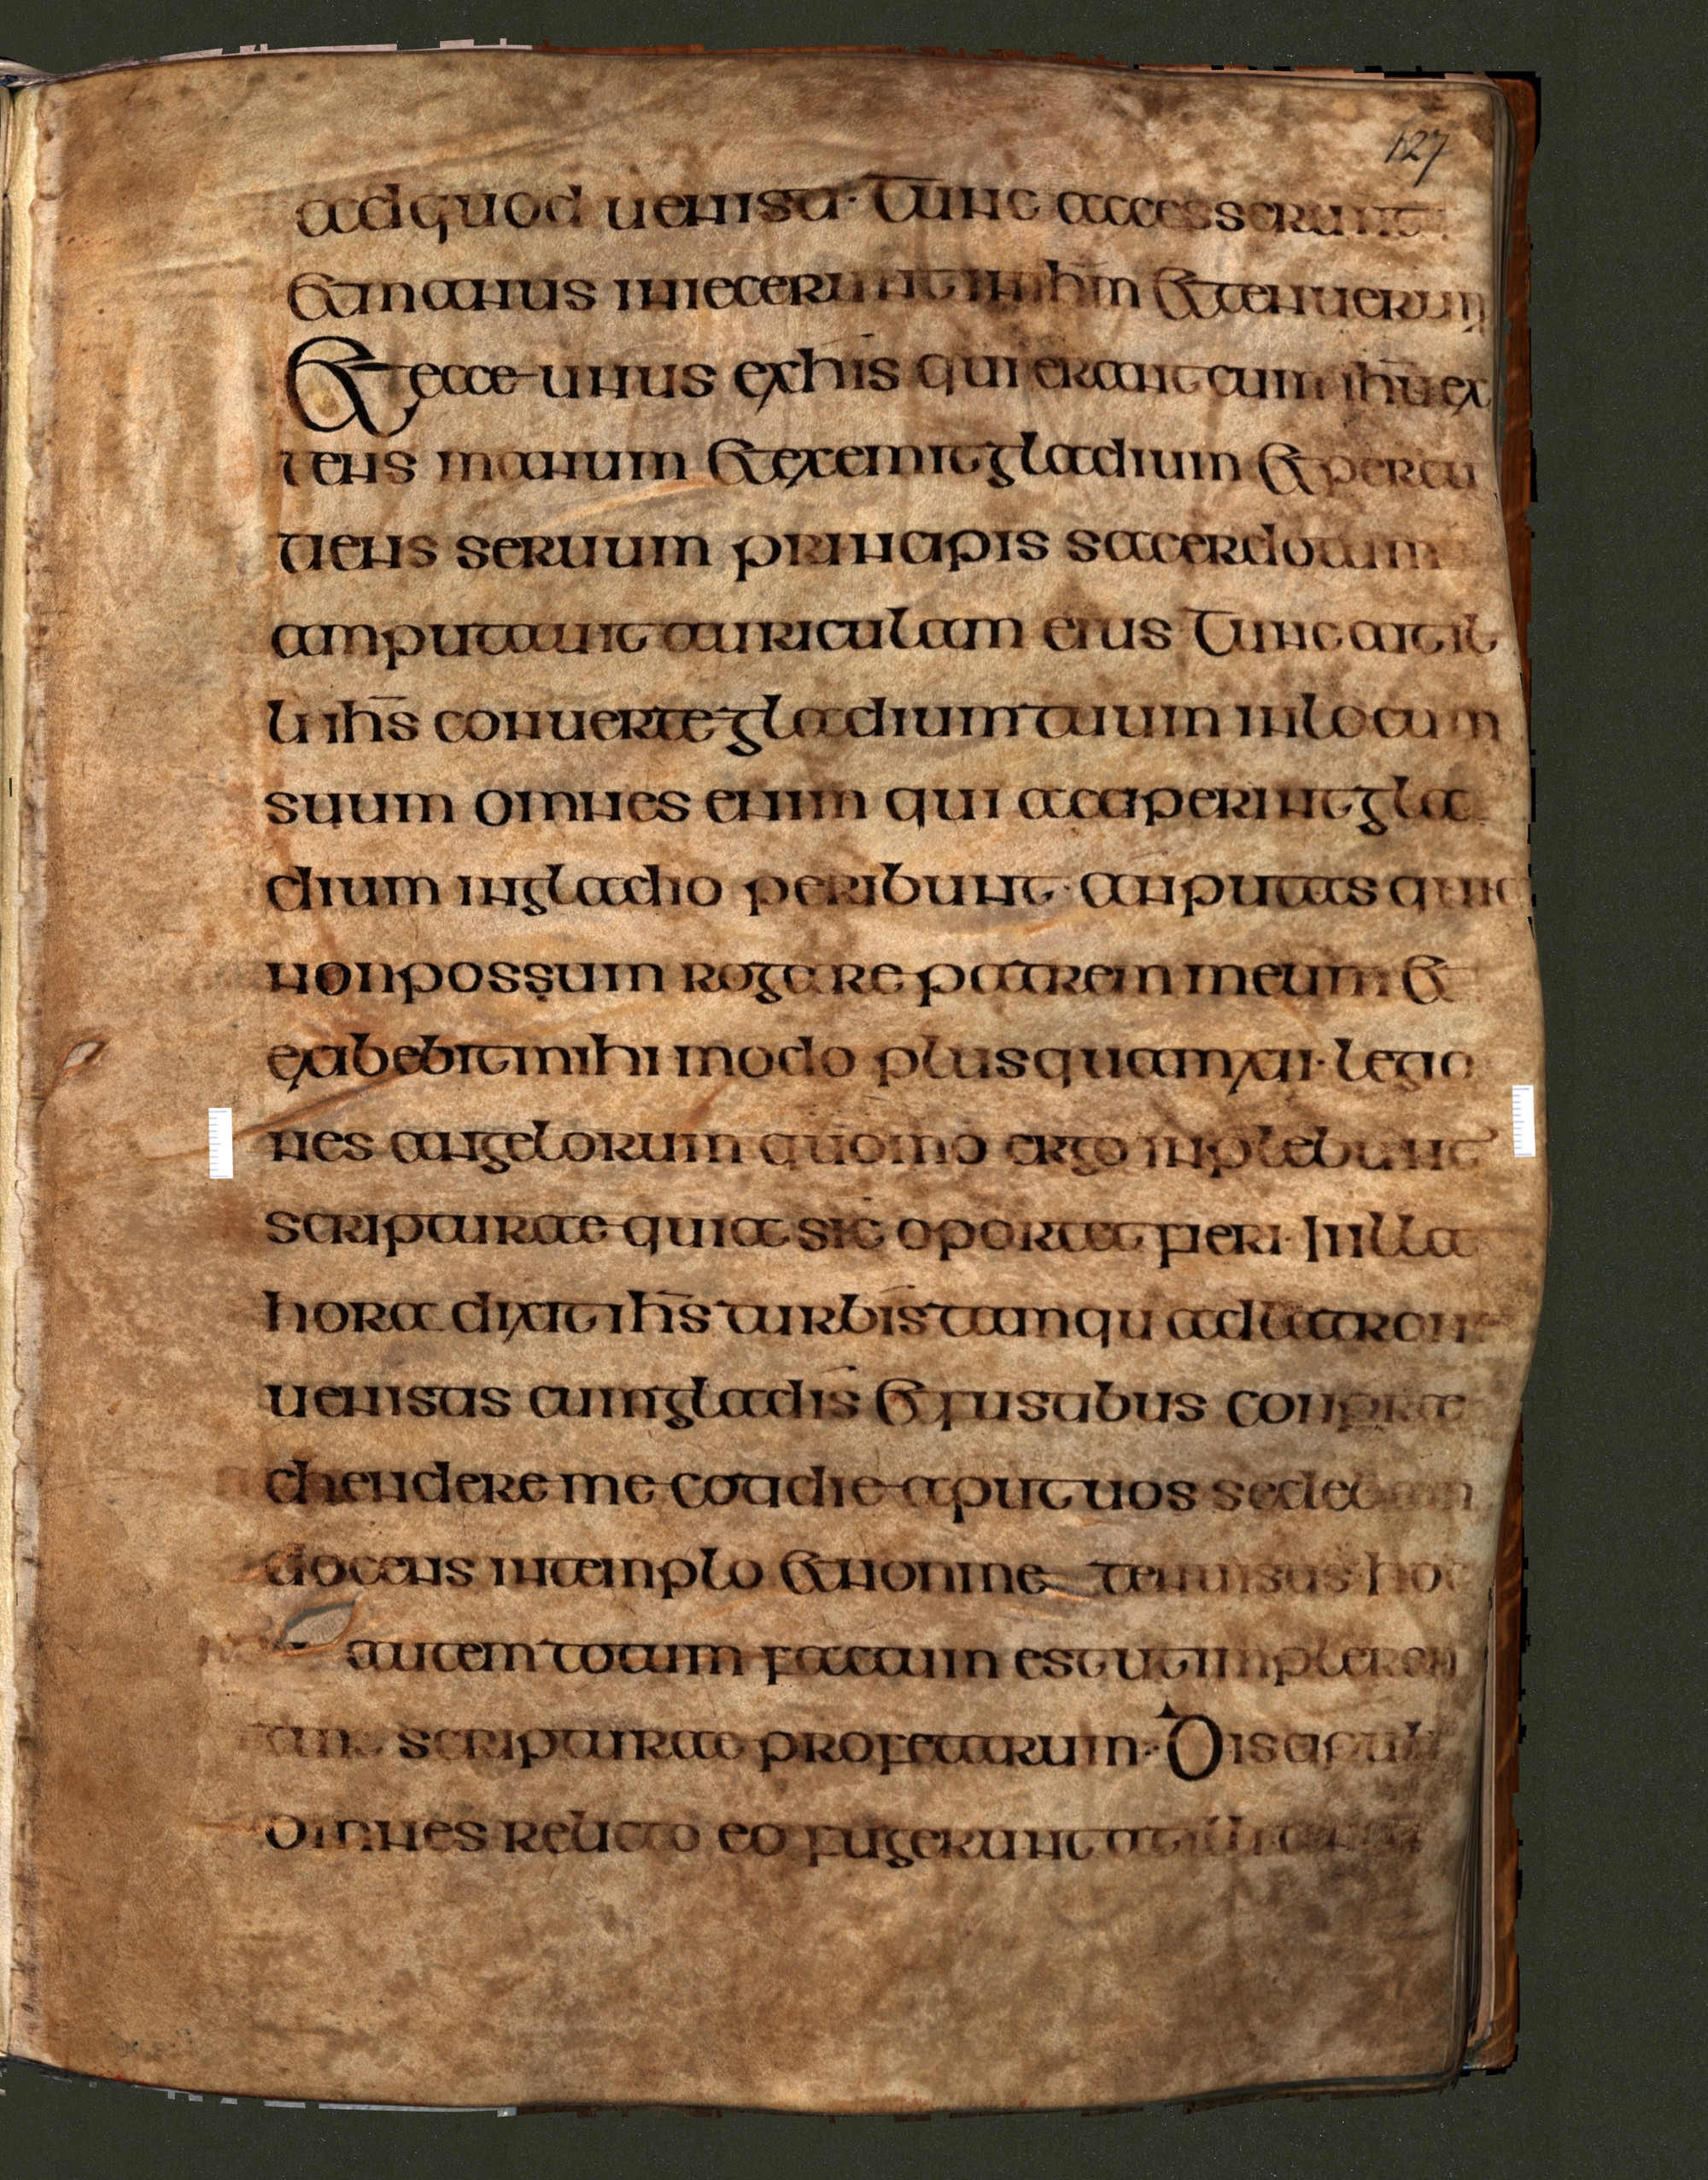 127
adquod uenisti· Tunc accesserunt
etmanus iniecerunt in ihm ettenuerun
Et ecce unus exhis qui erant cum ihu ex
tens manum etexemit gladium et percu
tiens seruum principis sacerdotum
amputauit auriculam eius Tunc ait il
li ihs conuerte gladium tuum inlocum
suum omnes enim qui acciperint gla
dium ingladio peribunt· anputas quia
nonpossum rogare patrem meum et
exibebit mihi modo plusquam xii· legio
nes angelorum quomo ergo inplebunt
scripturae quia sic oportet fieri· Inilla
hora dixit ihs turbis tamqu adlatron
uenistis cumgladis et fustibus conprae
chendere me cotidie aput uos sedebam
docens intemplo etnonme tenuistis hoc
autem totum factum est ut impleren
tur scripturae profetarum· Discipuli
omnes relicto eo fugerunt at illi